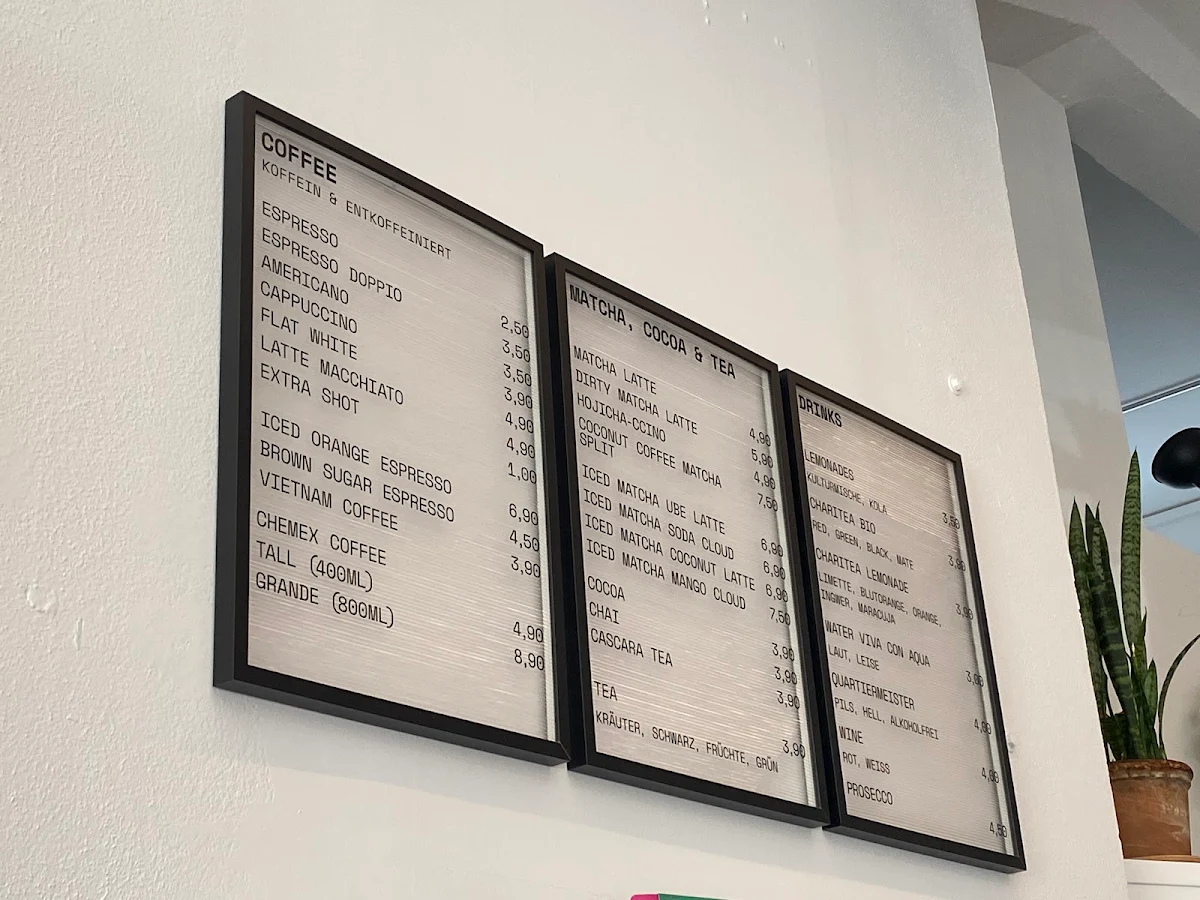 COFFEE
KOFFEIN & ENTKOFFEINIERT
ESPRESSO 2,50
ESPRESSO DOPPIO 3,50
AMERICANO 3,50
CAPPUCCINO 3,90
FLAT WHITE 4,90
LATTE MACCHIATO 4,90
EXTRA SHOT 1,00
ICED ORANGE ESPRESSO 6,90
BROWN SUGAR ESPRESSO 4,50
VIETNAM COFFEE 3,90
CHEMEX COFFEE
TALL (400ML) 4,90
GRANDE (800ML) 8,90
MATCHA, COCOA & TEA
MATCHA LATTE 4,90
DIRTY MATCHA LATTE 5,90
HOJICHA-CCINO 4,90
COCONUT COFFEE MATCHA 7,50
SPLIT
ICED MATCHA UBE LATTE 6,90
ICED MATCHA SODA CLOUD 6,90
ICED MATCHA COCONUT LATTE 6,90
ICED MATCHA MANGO CLOUD 7,50
COCOA 3,90
CHAI 3,90
CASCARA TEA 3,90
TEA 3,90
KRÄUTER, SCHWARZ, FRÜCHTE, GRÜN
DRINKS
LEMONADES 3,50
KULTURMISCHE, KOLA
CHARITEA BIO 3,90
RED, GREEN, BLACK, MATE
CHARITEA LEMONADE 3,90
LIMETTE, BLUTORANGE, ORANGE,
INGWER, MARACUJA
WATER VIVA CON AQUA 3,00
LAUT, LEISE
QUARTIERMEISTER
PILS, HELL, ALKOHOLFREI
WINE
ROT, WEISS
PROSECCO 4,50